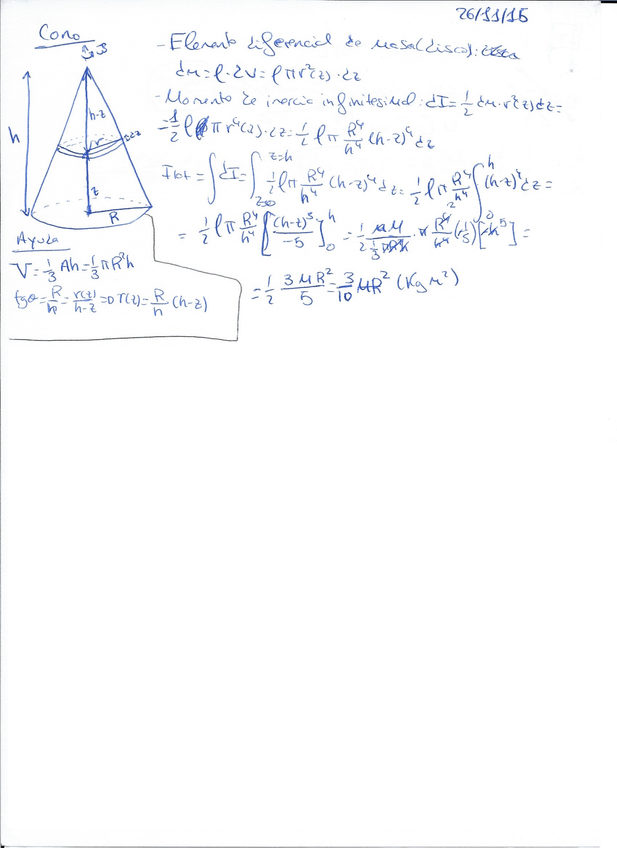 26/11/15
Cono
ω
h
h-z
r
dz
z
R
- Elemento diferencial de masa (disco):
dm = ρ · dV = ρ π r²(z) · dz
- Momento de inercia infinitesimal: dI = 1/2 dm · r²(z) dz =
= 1/2 ρ π r⁴(z) · dz = 1/2 ρ π R⁴/h⁴ (h-z)⁴ dz
Itot = ∫ dI = ∫_{z=0}^{z=h} 1/2 ρ π R⁴/h⁴ (h-z)⁴ dz = 1/2 ρ π R⁴/h⁴ ∫_{0}^{h} (h-z)⁴ dz =
= 1/2 ρ π R⁴/h⁴ [(h-z)⁵/-5]_0^h = 1/2 M/(1/3 πR²h) · π R⁴/h⁴ (-1/5) [0-h⁵] =
= 1/2 3MR²/5 = 3/10 MR² (Kg m²)
Ayuda
V = 1/3 Ah = 1/3 π R² h
tgθ = R/h = r(z)/h-z => r(z) = R/h (h-z)